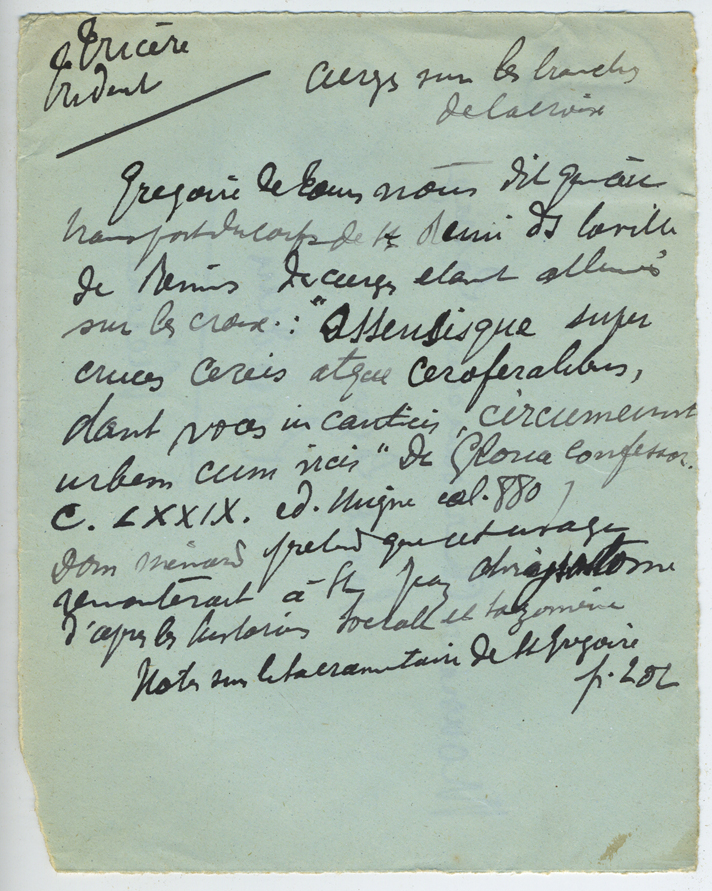 Tricère
Trident
cierges sur les branches
de la croix
Gregoire de Tours nous dit qu'au
transport du corps de St Remi ds la ville
de Reims des cierges etant allumés
sur les croix : "Assensisque super
cruces cereis atque ceroferalibus,
dant voces in canticis, circumeunt
urbem cum vicis" De Gloria confessor.
C. LXXIX. ed. Migne col. 880
Dom Ménard pretend que cet usage
remonterait à St Jean Chrysostome
d'apres les historiens Socrate et Sozomène
Notes sur le sacramentaire de St Gregoire
p. 202